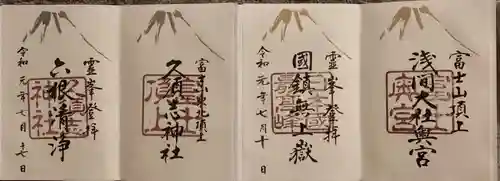 富士山頂上
浅間大社奥宮
霊峯登拝
國鎮無上嶽
令和元年七月十日
富士山東北頂上
久須志神社
霊峯登拝
六根清浄
令和元年七月十七日